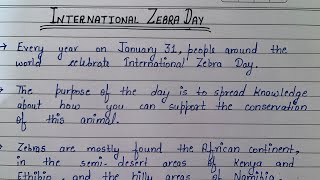 INTERNATIONAL ZEBRA DAY
→ Every year on January 31, people around the
world celebrate International Zebra Day.
→ The purpose of the day is to spread knowledge
about how you can support the conservation
of this animal.
→ Zebras are mostly found the African continent,
in the semi-desert areas of Kenya and
Ethibia, and the hilly areas of Namibia